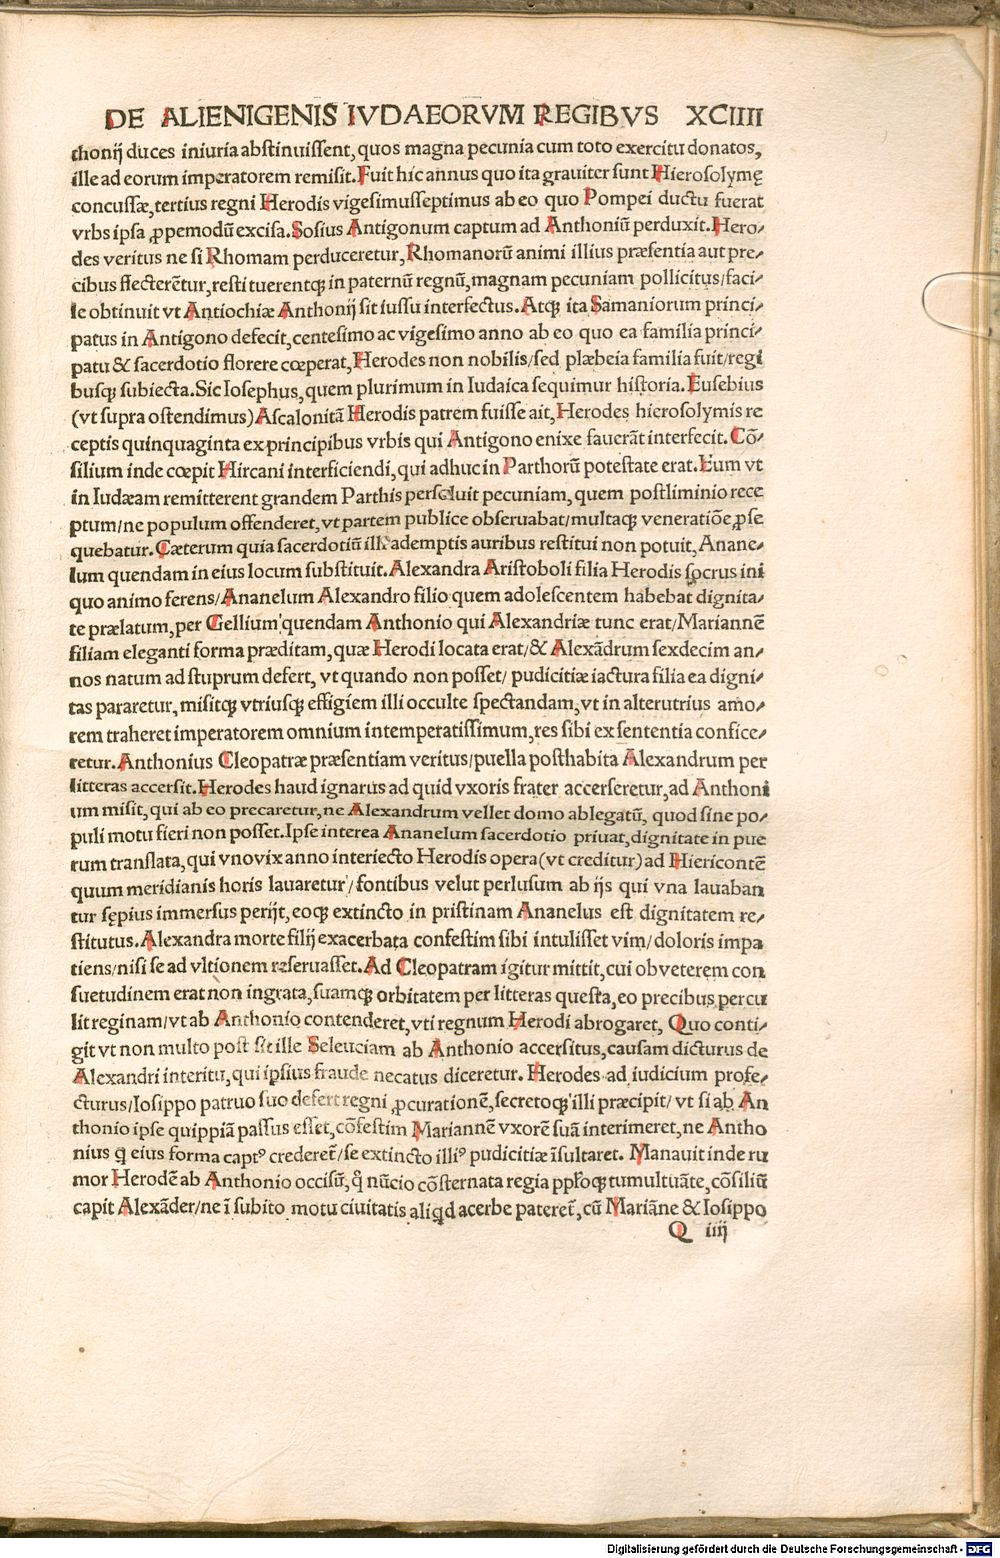 DE ALIENIGENIS IVDAEORVM REGIBVS XCIIII
thonij duces iniuria abstinuissent, quos magna pecunia cum toto exercitu donatos,
ille ad eorum imperatorem remisit. Fuit hic annus quo ita grauiter sunt Hierosolymę
concussæ, tertius regni Herodis vigesimusseptimus ab eo quo Pompei ductu fuerat
vrbs ipsa ꝓpemodū excisa. Sosius Antigonum captum ad Anthoniū perduxit. Hero-
des veritus ne si Rhomam perduceretur, Rhomanorū animi illius præsentia aut pre-
cibus flecterētur, restituerentqȝ in paternū regnū, magnam pecuniam pollicitus/faci-
le obtinuit vt Antiochiæ Anthonij sit iussu interfectus. Atqȝ ita Samaniorum princi-
patus in Antigono defecit, centesimo ac vigesimo anno ab eo quo ea familia princi-
patu & sacerdotio florere cœperat, Herodes non nobilis/sed plæbeia familia fuit/regi
busqȝ subiecta. Sic Iosephus, quem plurimum in Iudaica sequimur historia. Eusebius
(vt supra ostendimus) Ascalonitā Herodis patrem fuisse ait, Herodes hierosolymis re
ceptis quinquaginta ex principibus vrbis qui Antigono enixe fauerāt interfecit. Cō-
silium inde cœpit Hircani interficiendi, qui adhuc in Parthorū potestate erat. Eum vt
in Iudæam remitterent grandem Parthis persoluit pecuniam, quem postliminio rece
ptum/ne populum offenderet, vt partem publice obseruabat/multaqȝ veneratiōe ꝓse
quebatur. Cæterum quia sacerdotiū illi ademptis auribus restitui non potuit, Anane-
lum quendam in eius locum substituit. Alexandra Aristoboli filia Herodis socrus ini
quo animo ferens/Ananelum Alexandro filio quem adolescentem habebat dignita-
te prælatum, per Gellium quendam Anthonio qui Alexandriæ tunc erat/Mariannē
filiam eleganti forma præditam, quæ Herodi locata erat/& Alexādrum sexdecim an-
nos natum ad stuprum defert, vt quando non posset/ pudicitiæ iactura filia ea digni-
tas pararetur, misitqȝ vtriusqȝ effigiem illi occulte spectandam, vt in alterutrius amo-
rem traheret imperatorem omnium intemperatissimum, res sibi ex sententia confice-
retur. Anthonius Cleopatræ præsentiam veritus/puella posthabita Alexandrum per
litteras accersit. Herodes haud ignarus ad quid vxoris frater accerseretur, ad Anthoni
um misit, qui ab eo precaretur, ne Alexandrum vellet domo ablegatū, quod sine po-
puli motu fieri non posset. Ipse interea Ananelum sacerdotio priuat, dignitate in pue
rum translata, qui vnovix anno interiecto Herodis opera (vt creditur) ad Hiericontē
quum meridianis horis lauaretur/ fontibus velut perlusum ab ijs qui vna lauaban
tur sępius immersus perijt, eoqȝ extincto in pristinam Ananelus est dignitatem re-
stitutus. Alexandra morte filij exacerbata confestim sibi intulisset vim/ doloris impa
tiens/nisi se ad vltionem reseruasset. Ad Cleopatram igitur mittit, cui ob veterem con
suetudinem erat non ingrata, suamqȝ orbitatem per litteras questa, eo precibus percu
lit reginam/vt ab Anthonio contenderet, vti regnum Herodi abrogaret, Quo conti-
git vt non multo post sit ille Seleuciam ab Anthonio accersitus, causam dicturus de
Alexandri interitu, qui ipsius fraude necatus diceretur. Herodes ad iudicium profe-
cturus/Iosippo patruo suo defert regni ꝓcurationē, secretoqȝ illi præcipit/ vt si ab An
thonio ipse quippiā passus esset, cōfestim Mariannē vxorē suā interimeret, ne Antho
nius ꝙ eius forma captꝰ crederet̄/se extincto illiꝰ pudicitiæ īsultaret. Manauit inde ru
mor Herodē ab Anthonio occisū, ꝙ nūcio cōsternata regia ppl'oqȝ tumultuāte, cōsiliū
capit Alexāder/ne ī subito motu ciuitatis aliqd acerbe pateret̄, cū Mariāne & Iosippo
Q iiij
Digitalisierung gefördert durch die Deutsche Forschungsgemeinschaft - DFG